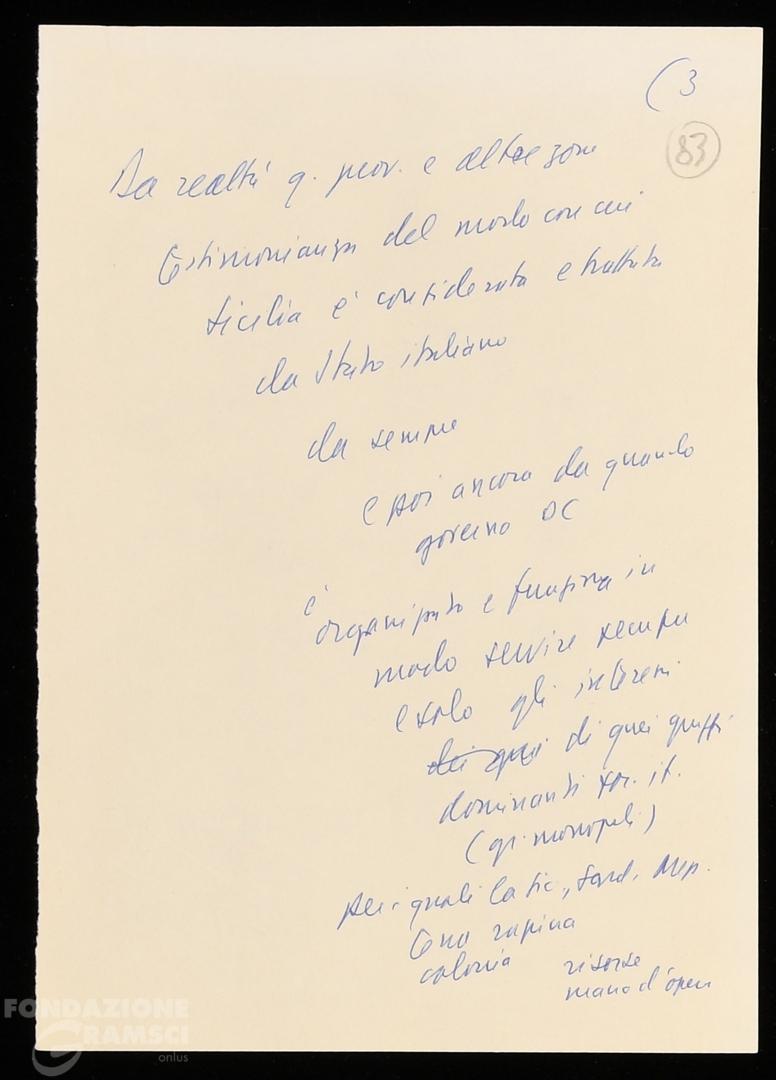 (3
83
La realtà q. prov. e altre zone
testimonianza del modo con cui
Sicilia è considerata e trattata
da Stato italiano
da sempre
e poi ancora da quando
governo DC
è
organizzato e funziona in
modo servire sempre
e solo gli interessi
dei di quei gruppi
dominanti soc. it.
(gr. monopoli)
per i quali la Sic., Sard., Mez.
rapina
colonia risorse
mano d'opera
FONDAZIONE
GRAMSCI
onlus